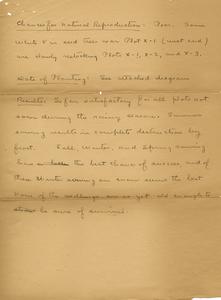 Chances for Natural Reproduction: Poor. Some
white P. in seed trees near Plot X-1 (west end)
are slowly restocking Plots X-1, X-2, and X-3.
Date of Planting: See attached diagram
Results: So far satisfactory for all plots not
sown during the summer season. Summer
sowing results in complete destruction by
frost. Fall, Winter, and Spring sowing
has the best chance of success, and of
these Winter sowing on snow seems the best
None of the seedlings are as yet old enough to
be sure of survival.